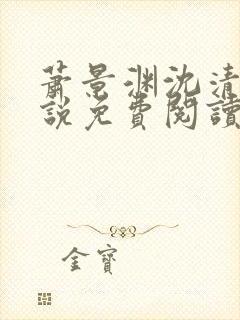 蕭景渊沈清
說免費閱讀
金寶